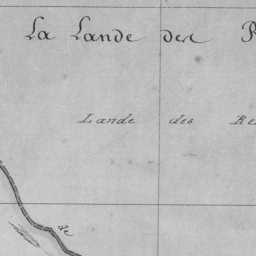 La Lande des
Lande des Re
de